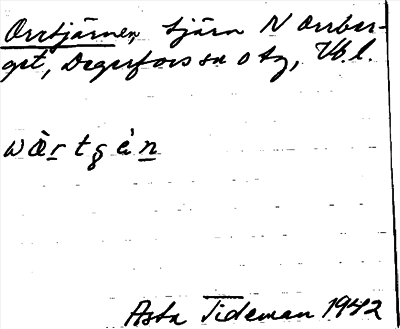 Orrtjärnen, tjärn N Orrber-
get, Degerfors sn o tg, Vb. l.
wȧ̀r̲tgėn̲
Asta Tideman 1942